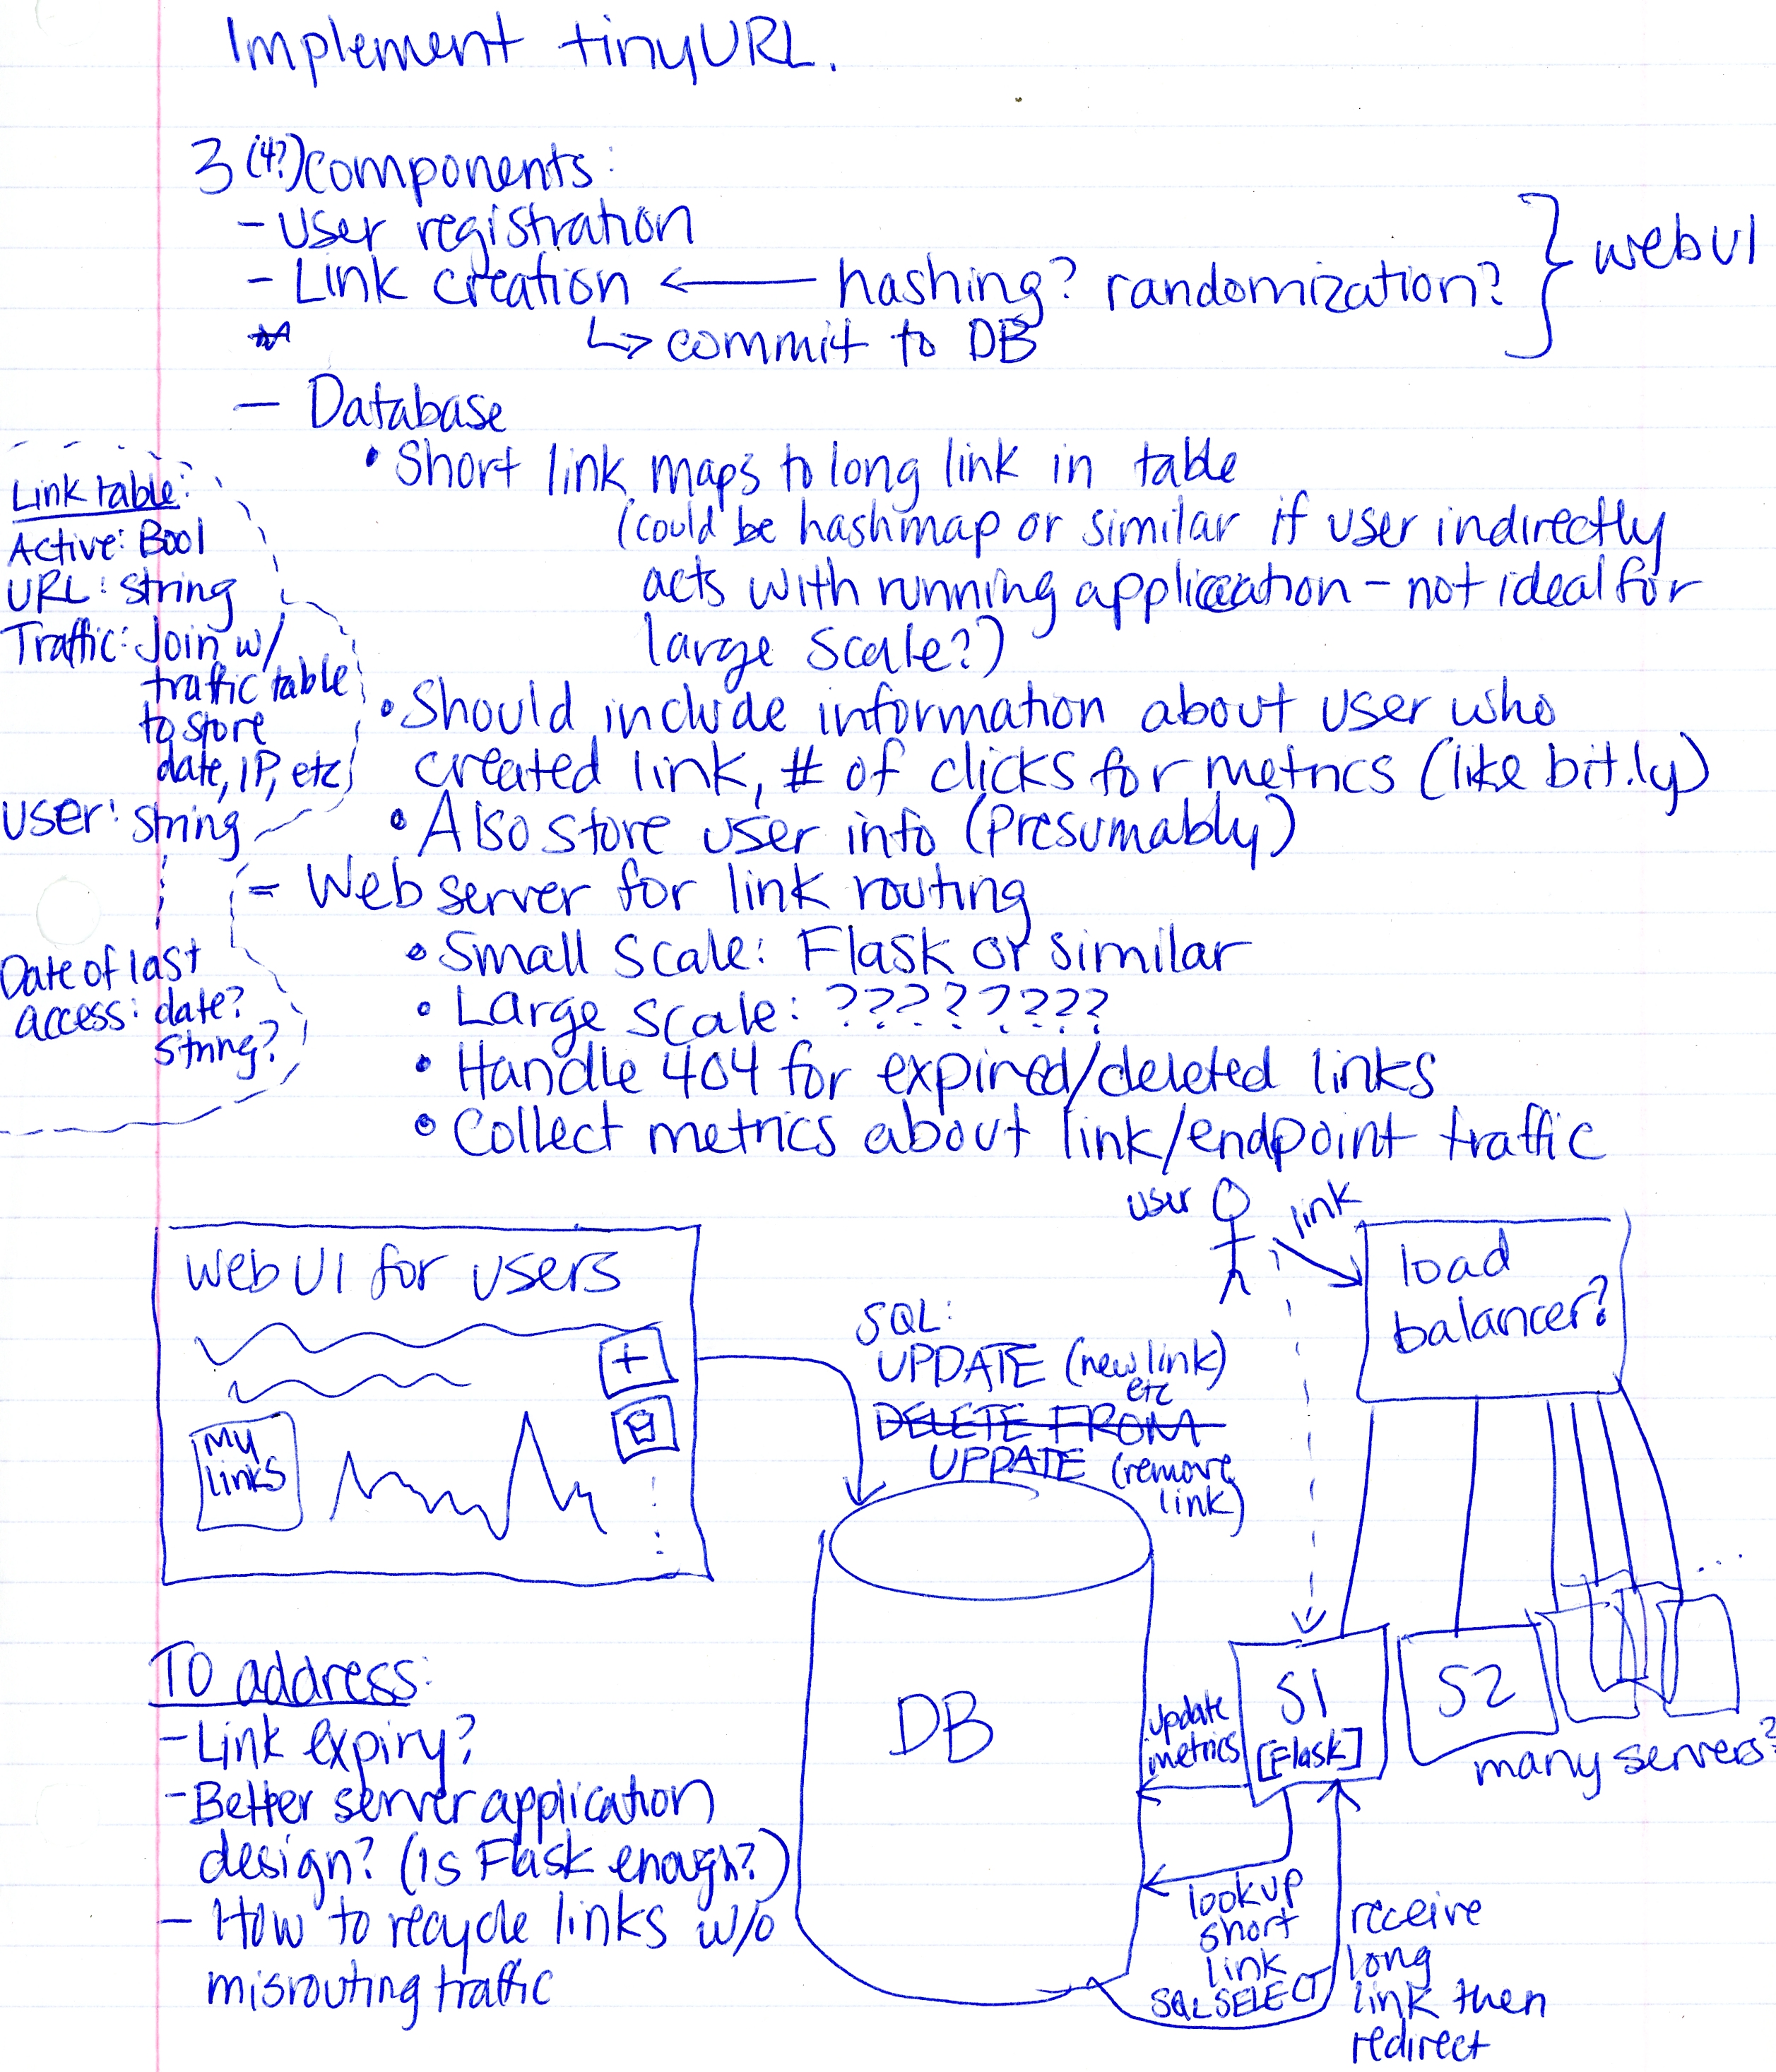 Implement tinyURL.
3 (4?) components:
- User registration
- Link creation ← hashing? randomization?
↳ commit to DB
} web UI
- Database
• Short link maps to long link in table
(could be hashmap or similar if user indirectly
acts with running application - not ideal for
large scale?)
• Should include information about user who
created link, # of clicks for metrics (like bit.ly)
• Also store user info (presumably)
- Web server for link routing
• Small scale: Flask or similar
• Large scale: ?????????
• Handle 404 for expired/deleted links
• Collect metrics about link/endpoint traffic
Link table:
Active: Bool
URL: string
Traffic: Join w/
traffic table
to store
date, IP, etc
User: string
Date of last
access: date?
string?
Web UI for users
+
My
links
SQL:
UPDATE (new link)
etc
DELETE FROM
UPDATE (remove
link)
user
link
load
balancer?
DB
S1
[Flask]
S2
...
many servers?
update
metrics
lookup
short
link
SQL SELECT
receive
long
link then
redirect
To address:
- Link expiry?
- Better server application
design? (is Flask enough?)
- How to recycle links w/o
misrouting traffic